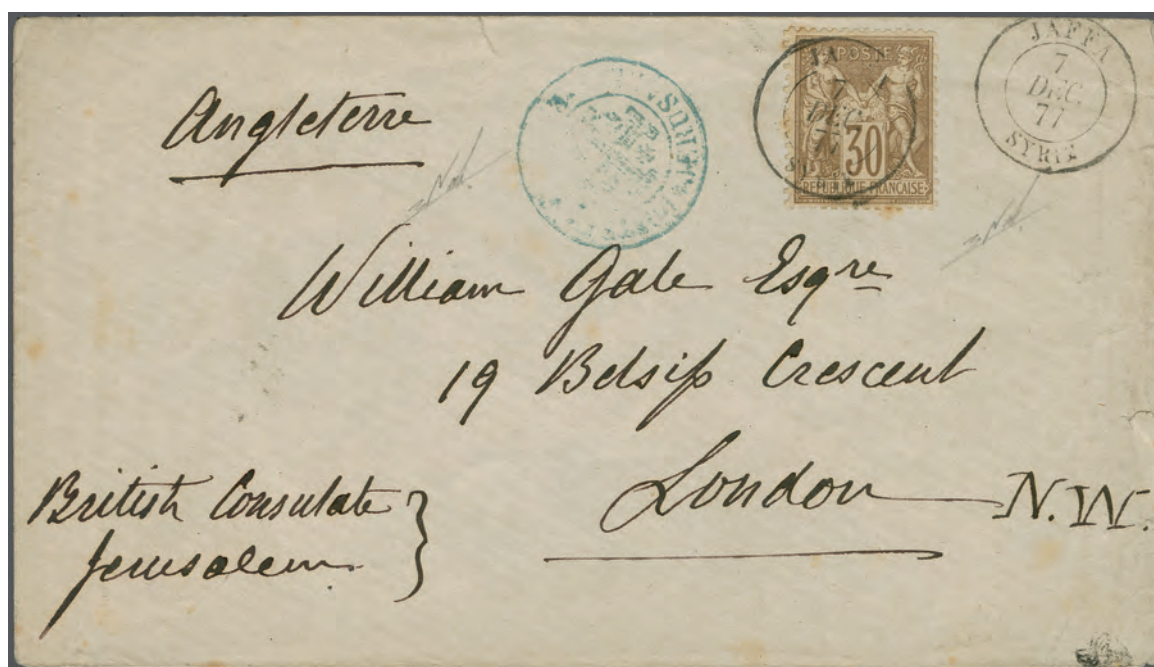 Angleterre
POSTE
30
REPUBLIQUE FRANÇAISE
JAFFA
7
DEC.
77
SYRIE
7
DEC
77
William Gale Esqre
19 Belsize Crescent
London N.W.
British Consulate
Jerusalem